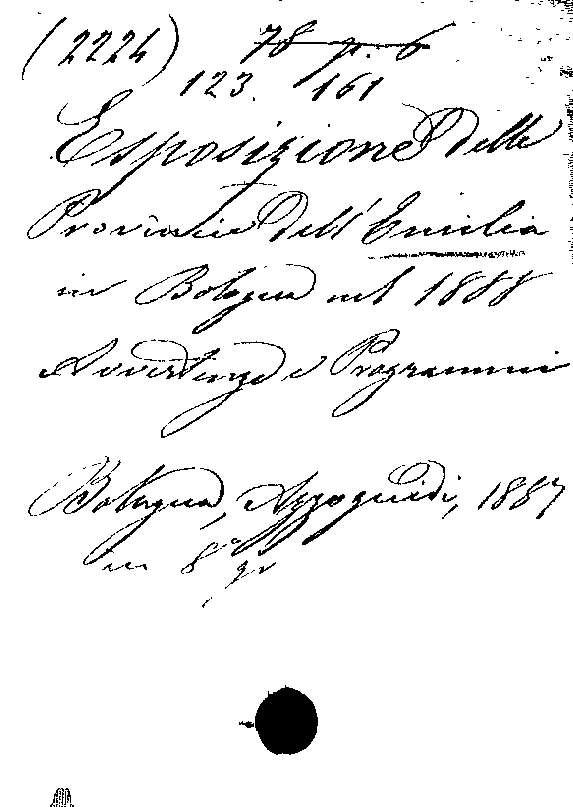 (2224) 78 p. 6
123. 161
Esposizione delle
Provincie dell'Emilia
in Bologna nel 1888
Avvertenze e Programmi
Bologna, Azzoguidi, 1887
in 8º gr